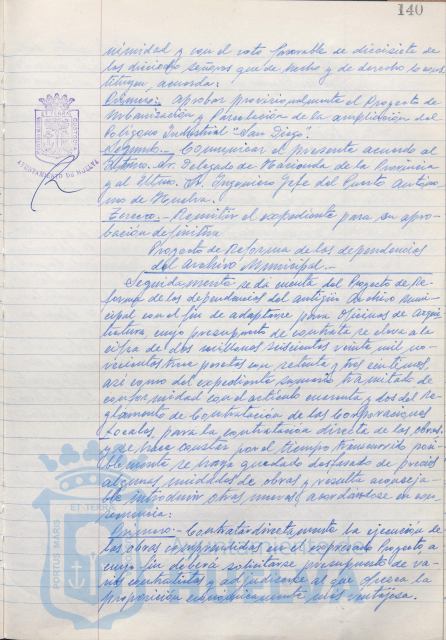 140
nimidad y con el voto favorable de diecisiete de
los dieciocho señores que de hecho y de derecho lo cons
tituyen, acuerda:
Primero:- Aprobar provisionalmente el Proyecto de
Urbanización y Parcelación de la ampliación del
Polígono Industrial "San Diego".
Segundo.- Comunicar el presente acuerdo al
Iltmo. Sr. Delegado de Hacienda de la Provincia
y al Iltmo. Sr. Ingeniero Jefe del Puerto Autóno
mo de Huelva.
Tercero.- Remitir el expediente para su apro-
bación definitiva
Proyecto de Reforma de las dependencias
del Archivo Municipal.-
Seguidamente se da cuenta del Proyecto de Re-
forma de las dependencias del antiguo Archivo Muni
cipal con el fin de adaptarse para Oficinas de Arqui
tectura, cuyo presupuesto de contrata se eleva a la
cifra de dos millones seiscientas veinte mil no-
vecientas trece pesetas con setenta y tres céntimos,
así como del expediente sumario tramitado de
conformidad con el artículo cuarenta y dos del Re
glamento de Contratación de las Corporaciones
Locales, para la contratación directa de las obras,
y se hace constar por el tiempo transcurrido posi-
blemente se haya quedado desfasado de precios
algunas unidades de obras y resulta aconseja-
ble introducir otras nuevas, acordándose en con-
secuencia:
Primero.- Contratar directamente la ejecución de
las obras comprendidas en el expresado Proyecto a
cuyo fin deberá solicitarse presupuesto de va-
rios contratistas y adjudicarse al que ofrezca la
proposición económicamente más ventajosa.
AYUNTAMIENTO DE HUELVA
PORTUS MARIS
ET TERRAE